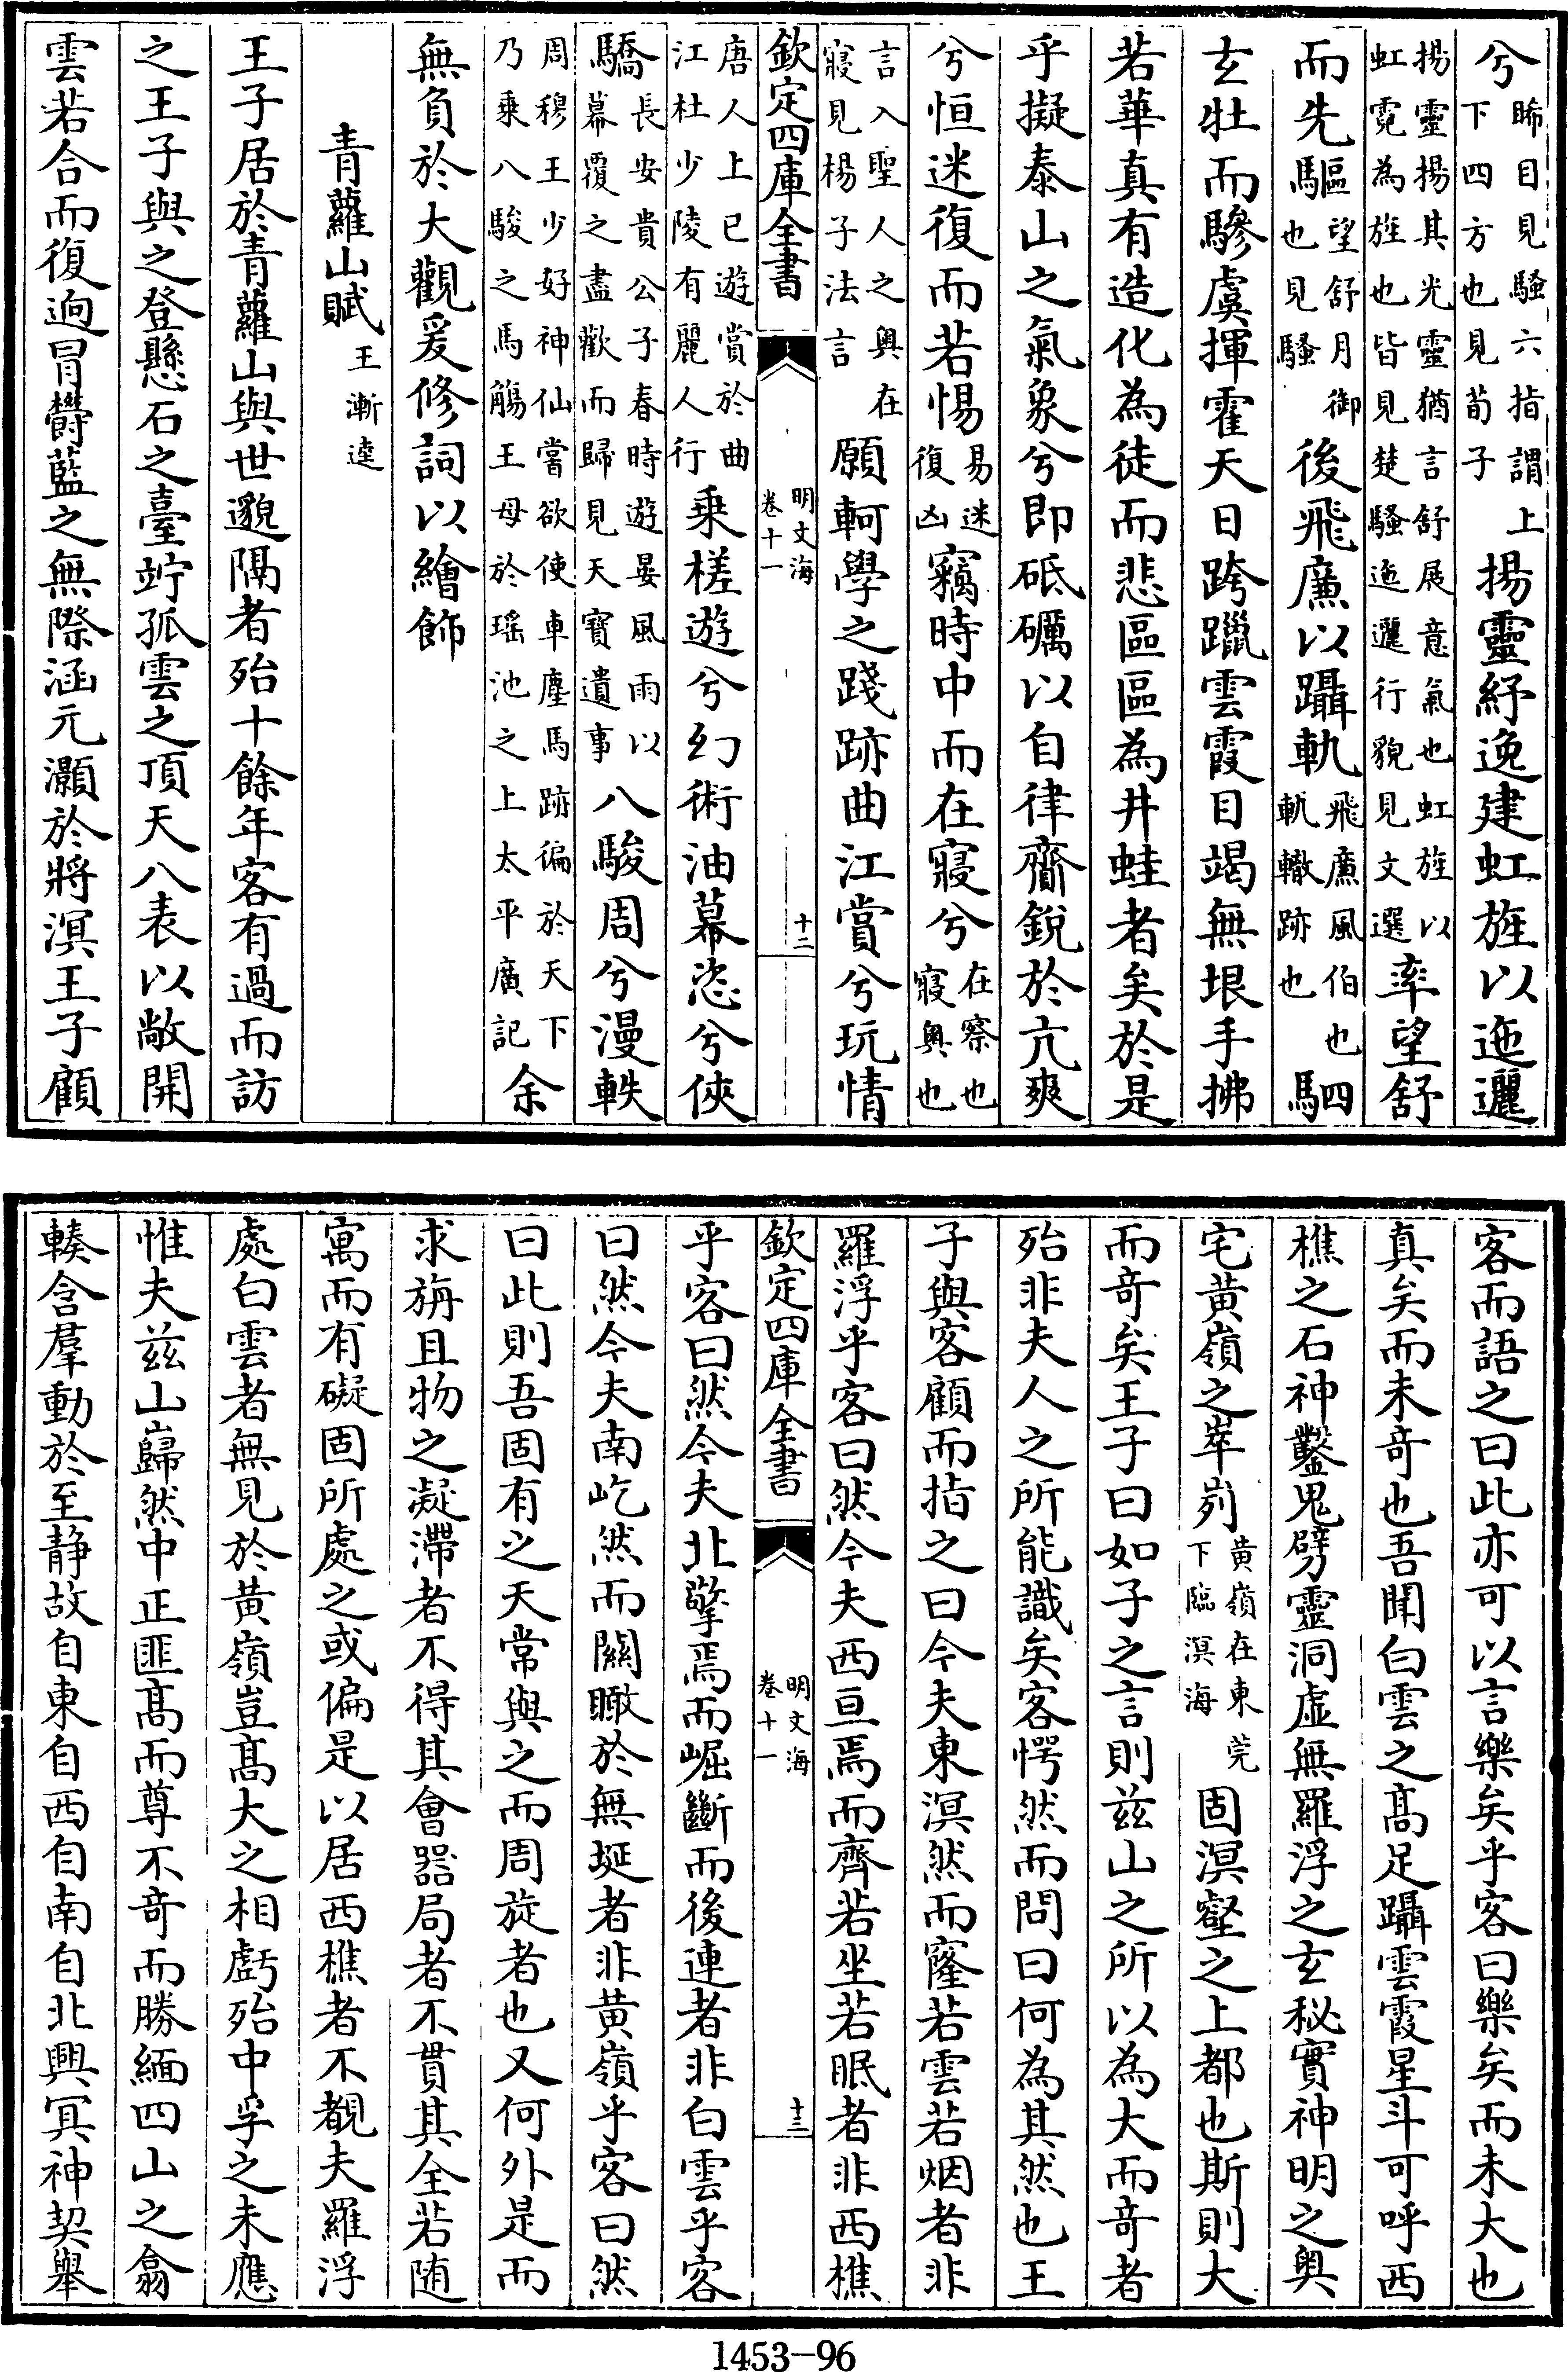 兮睎目見騷六指謂上下四方也見荀子揚靈紓逸建虹旌以迤邐
揚靈揚其光靈猶言舒展意氣也虹旌以虹霓為旌也皆見楚騷迤邐行貌見文選率望舒
而先驅望舒月御也見騷後飛廉以躡軌飛廉風伯也軌轍跡也駟
玄牡而驂虞揮霍天日跨躐雲霞目竭無垠手拂
若華真有造化為徒而悲區區為井蛙者矣於是
乎擬泰山之氣象兮即砥礪以自律齎銳於亢爽
兮恒迷復而若惕易迷復凶竊時中而在寢兮在察也寢奥也
言入聖人之奥在寢見楊子法言願軻學之踐跡曲江賞兮玩情
欽定四庫全書
明文海
卷十一
十二
唐人上巳遊賞於曲江杜少陵有麗人行乗槎遊兮幻術油幕恣兮俠
驕長安貴公子春時遊晏風雨以幕覆之盡歡而歸見天寶遺事八駿周兮漫軼
周穆王少好神仙嘗欲使車塵馬跡徧於天下乃乗八駿之馬觴王母於瑶池之上太平廣記余
無負於大觀爰修詞以繪飾
青蘿山賦王漸逵
王子居於青蘿山與世邈隔者殆十餘年客有過而訪
之王子與之登懸石之臺竚孤雲之頂天八表以敞開
雲若合而復逈冒欝藍之無際涵元灝於將溟王子顧
客而語之曰此亦可以言樂矣乎客曰樂矣而未大也
真矣而未奇也吾聞白雲之髙足躡雲霞星斗可呼西
樵之石神鑿鬼劈靈洞虚無羅浮之玄秘實神明之奥
宅黄嶺之崒屴黄嶺在東莞下臨溟海固溟壑之上都也斯則大
而竒矣王子曰如子之言則兹山之所以為大而竒者
殆非夫人之所能識矣客愕然而問曰何為其然也王
子與客顧而指之曰今夫東溟然而窿若雲若烟者非
羅浮乎客曰然今夫西亘焉而齊若坐若眠者非西樵
欽定四庫全書
明文海
卷十一
十三
乎客曰然今夫北擎焉而崛斷而後連者非白雲乎客
曰然今夫南屹然而闞瞰於無埏者非黄嶺乎客曰然
曰此則吾固有之天常與之而周旋者也又何外是而
求旃且物之凝滯者不得其會器局者不貫其全若随
寓而有礙固所處之或偏是以居西樵者不覩夫羅浮
處白雲者無見於黄嶺豈髙大之相虧殆中孚之未應
惟夫兹山巋然中正匪髙而尊不竒而勝緬四山之翕
輳含羣動於至静故自東自西自南自北興冥神契舉
1453-96